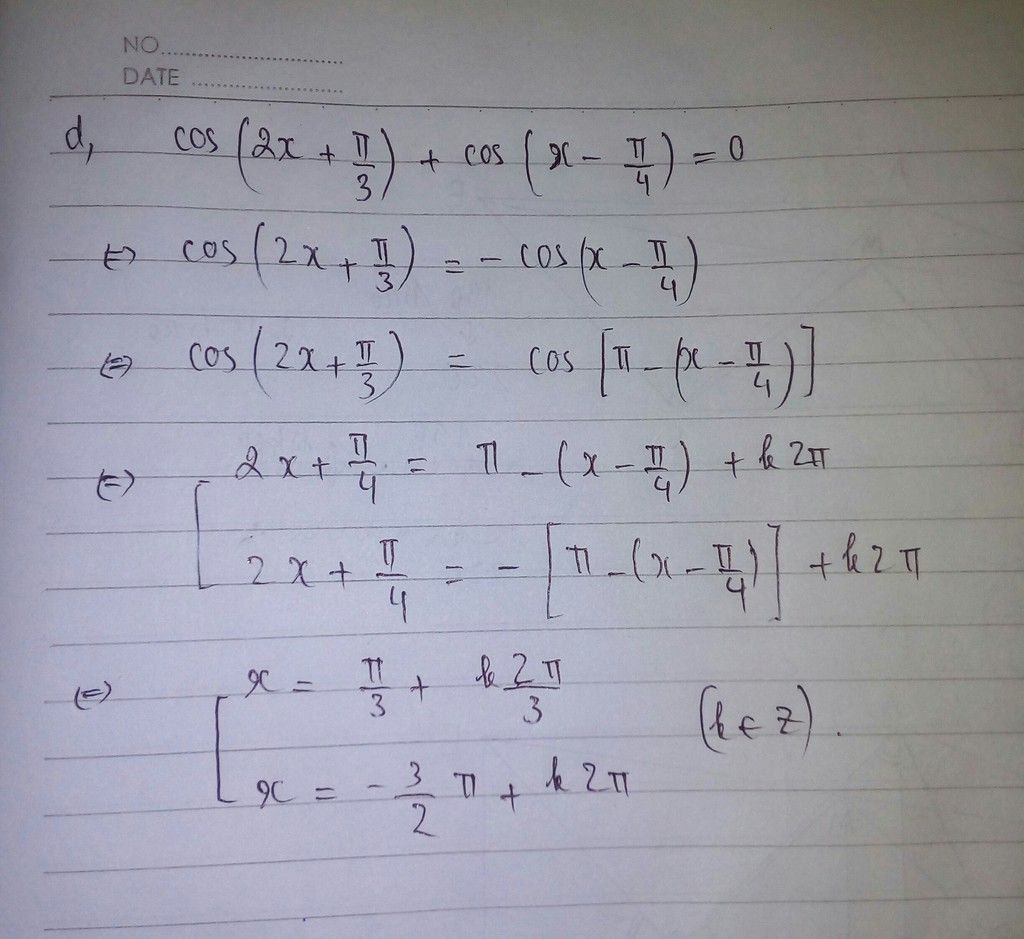 NO
DATE
d, cos (2x + π/3) + cos (x - π/4) = 0
⇔ cos (2x + π/3) = - cos (x - π/4)
⇔ cos (2x + π/3) = cos [π - (x - π/4)]
⇔ [ 2x + π/4 = π - (x - π/4) + k2π
2x + π/4 = - [π - (x - π/4)] + k2π
⇔ [ x = π/3 + k2π/3
(k ∈ Z).
x = - 3/2 π + k2π